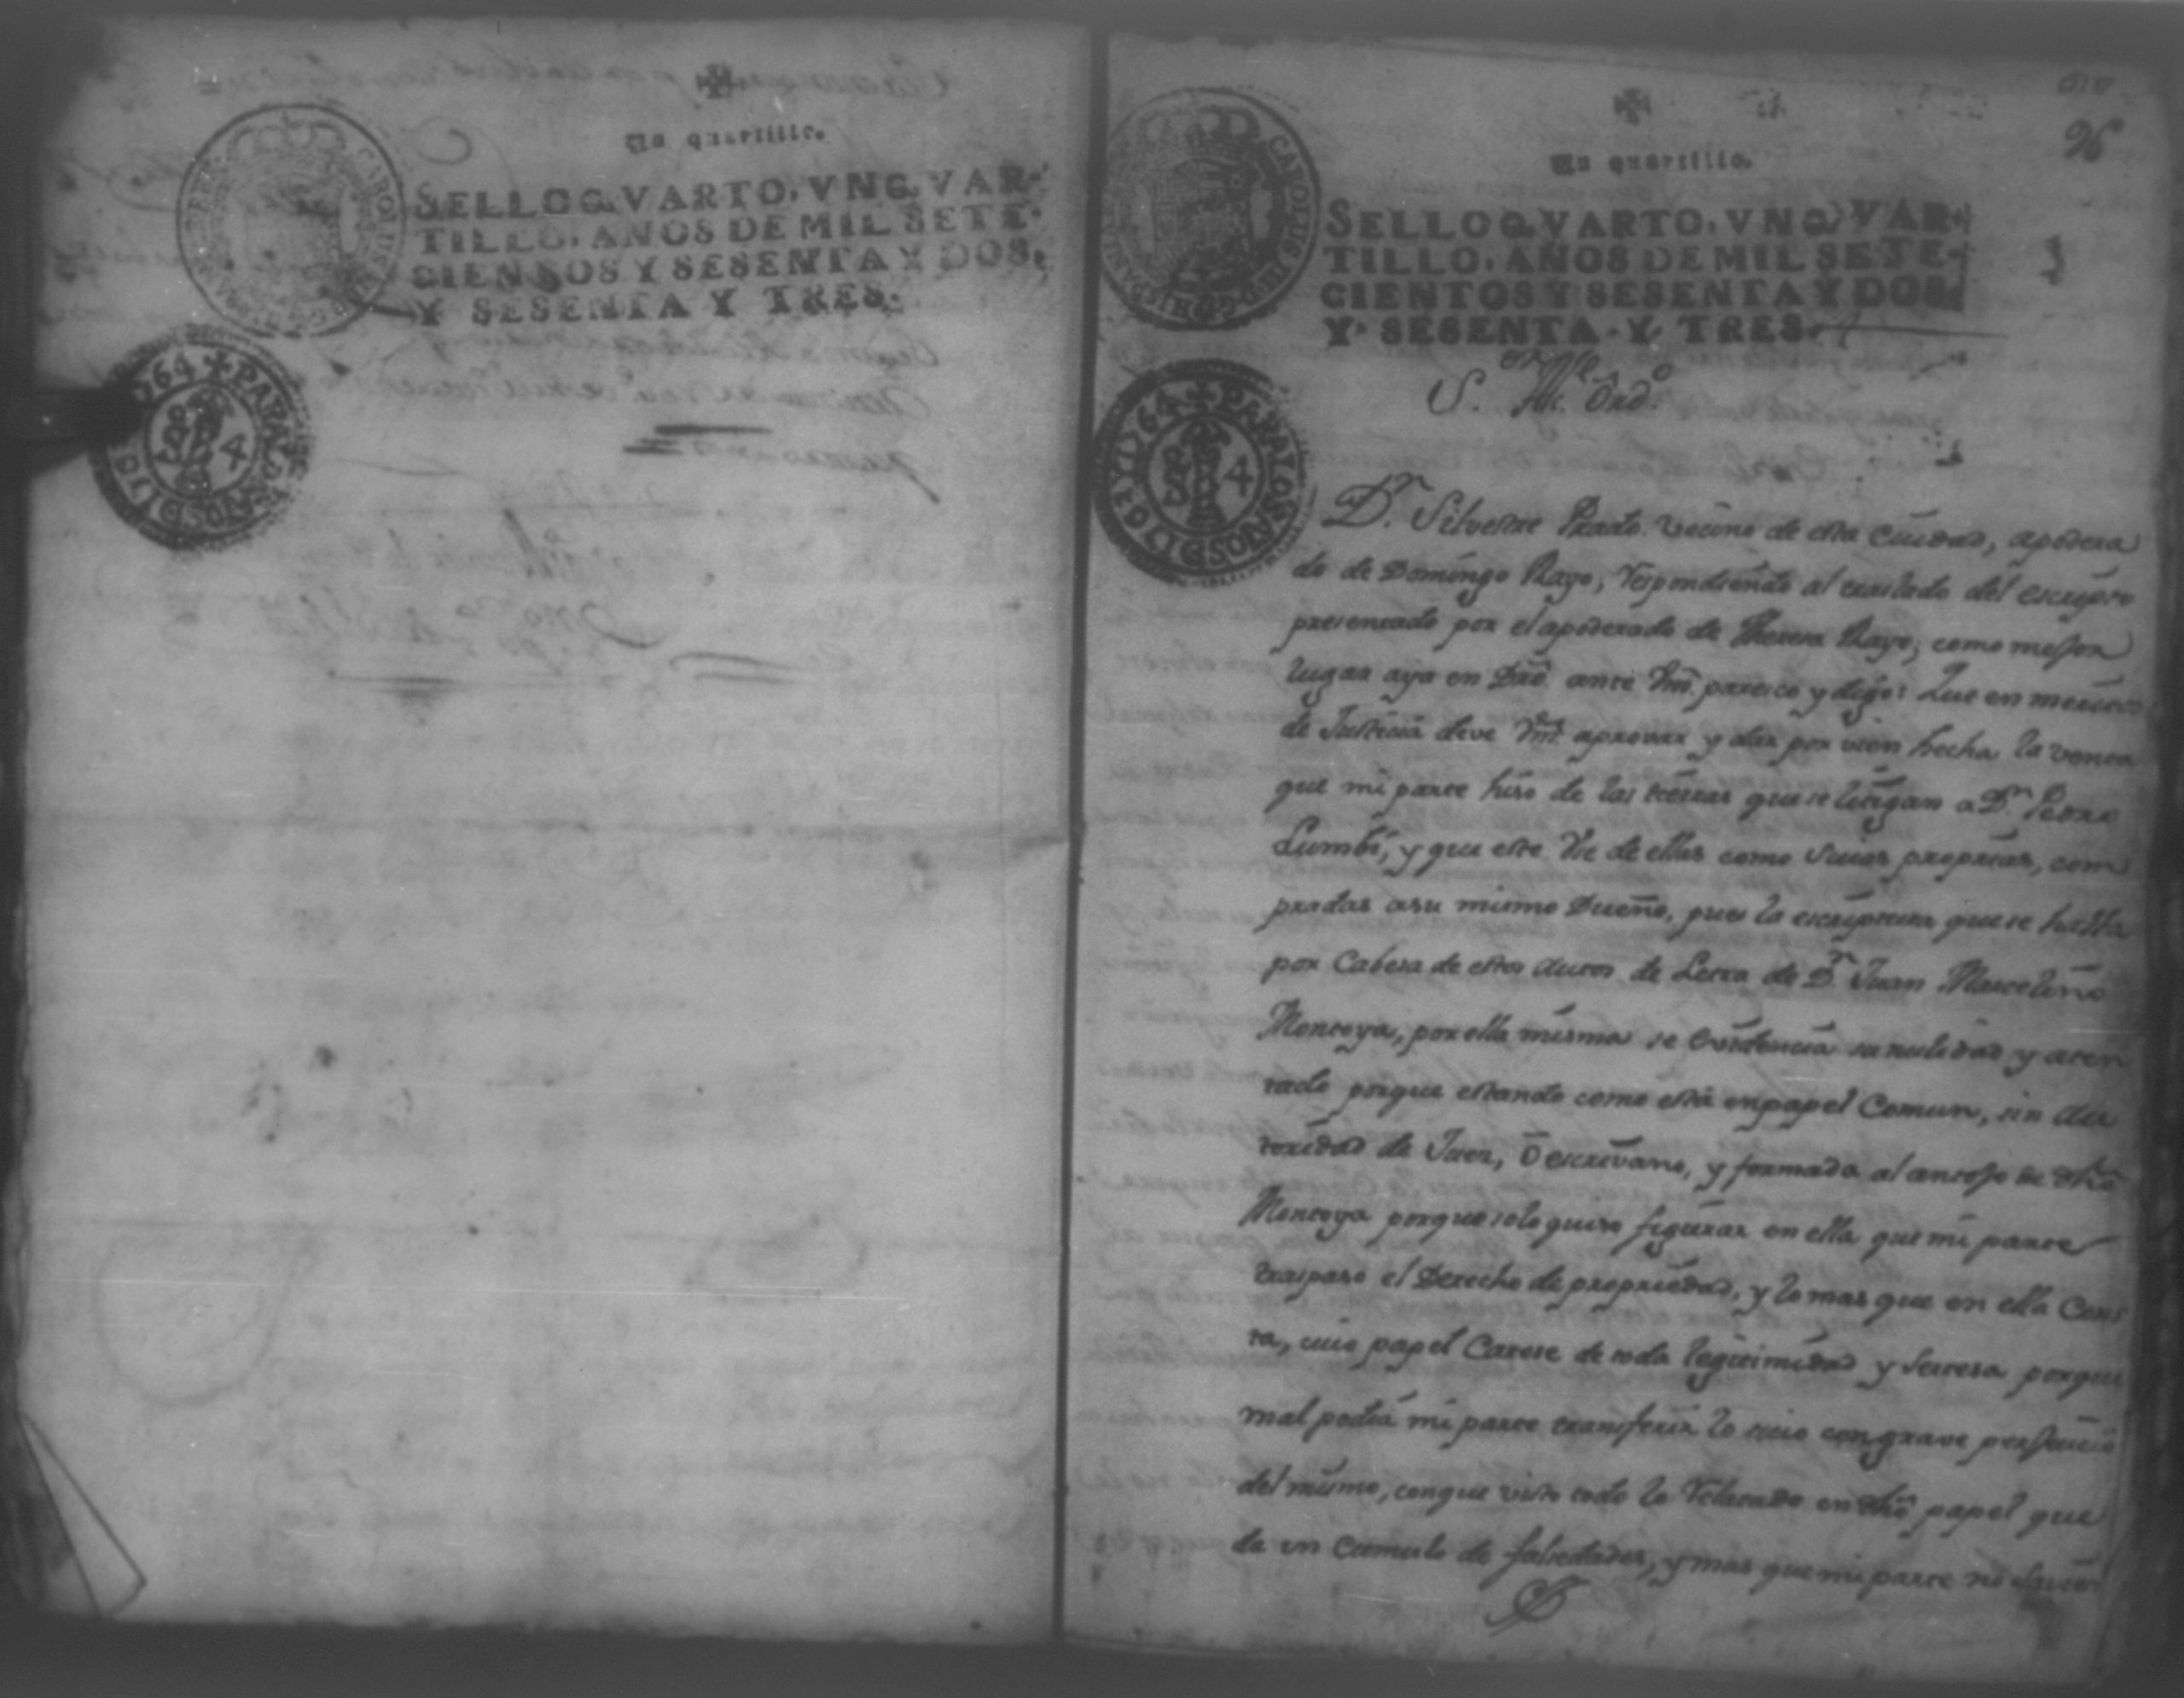 Un quartillo.
SELLO QVARTO, VN QVAR-
TILLO, AÑOS DE MIL SETE-
CIENTOS Y SESENTA Y DOS,
Y SESENTA Y TRES.
1764
PARA LOS AÑOS DE 1763 Y 1764
4
Un quartillo.
96
SELLO QVARTO, VN QVAR-
TILLO, AÑOS DE MIL SETE-
CIENTOS Y SESENTA Y DOS,
Y SESENTA Y TRES.
CAROLUS III D G HISPANIAR
PARA LOS AÑOS DE 1763 Y 1764
4
S.ᵒʳ Alc.ᵈᵉ Ord.ᵒ
D.ⁿ Silvestre Prado vecino de esta Ciudad, apodera
do de Domingo Rayo, respondiendo al traslado del escripto
presentado por el apoderado de Theresa Rayo, como mejor
lugar aya en Dro. ante Vm. paresco y digo: Que en meritos
de Justicia deve Vmd. aprovar y dar por vien hecha la venta
que mi parte hiso de las tierras que se litigan a D.ⁿ Pedro
Lumbi, y que este Vse de ellas como suias proprias, com
pradas asu mismo Dueño, pues la escriptura que se halla
por Cabesa de estos Autos de Letra de D.ⁿ Juan Marcelino
Montoya, por ella misma se evidencia su nulidad y aten
tado porque estando como está en papel Comun, sin au
toridad de Juez, ô escrivano, y formada al antojo de dho
Montoya porque solo quiso figurar en ella que mi parte
traspaso el Derecho de propriedad, y lo mas que en ella Cons
ta, cuio papel Carese de toda legitimidad y serteza porque
mal podia mi parte transferir lo suio con grave perjuicio
del mismo, conque visto todo lo relatado en dho papel que
da un cumulo de falsedades, y mas que mi parte no